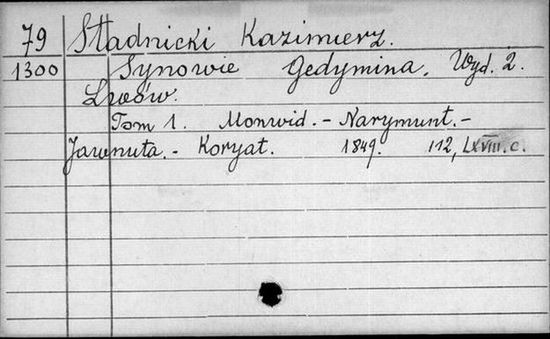 79 Stadnicki Kazimierz.
1300 Synowie Gedymina. Wyd. 2.
Lwów.
Tom 1. Monwid. - Narymunt. -
Jawnuta. - Koryat. 1849. 112, LXVIII. c.